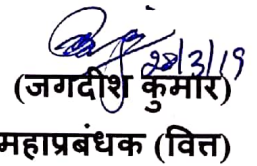 28/3/19
(जगदीश कुमार)
महाप्रबंधक (वित्त)